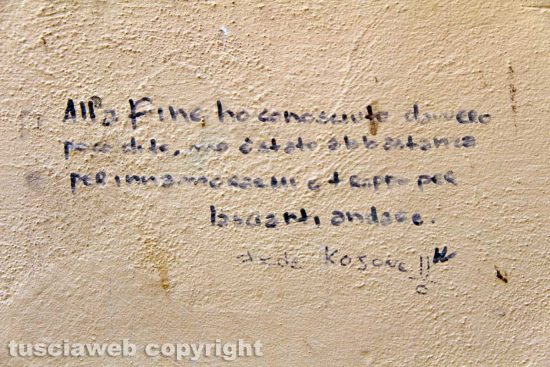 Alla Fine ho conosciuto davvero
poco di te, ma è stato abbastanza
per innamorarmi e troppo per
lasciarti andare.
Kosove
tusciaweb copyright